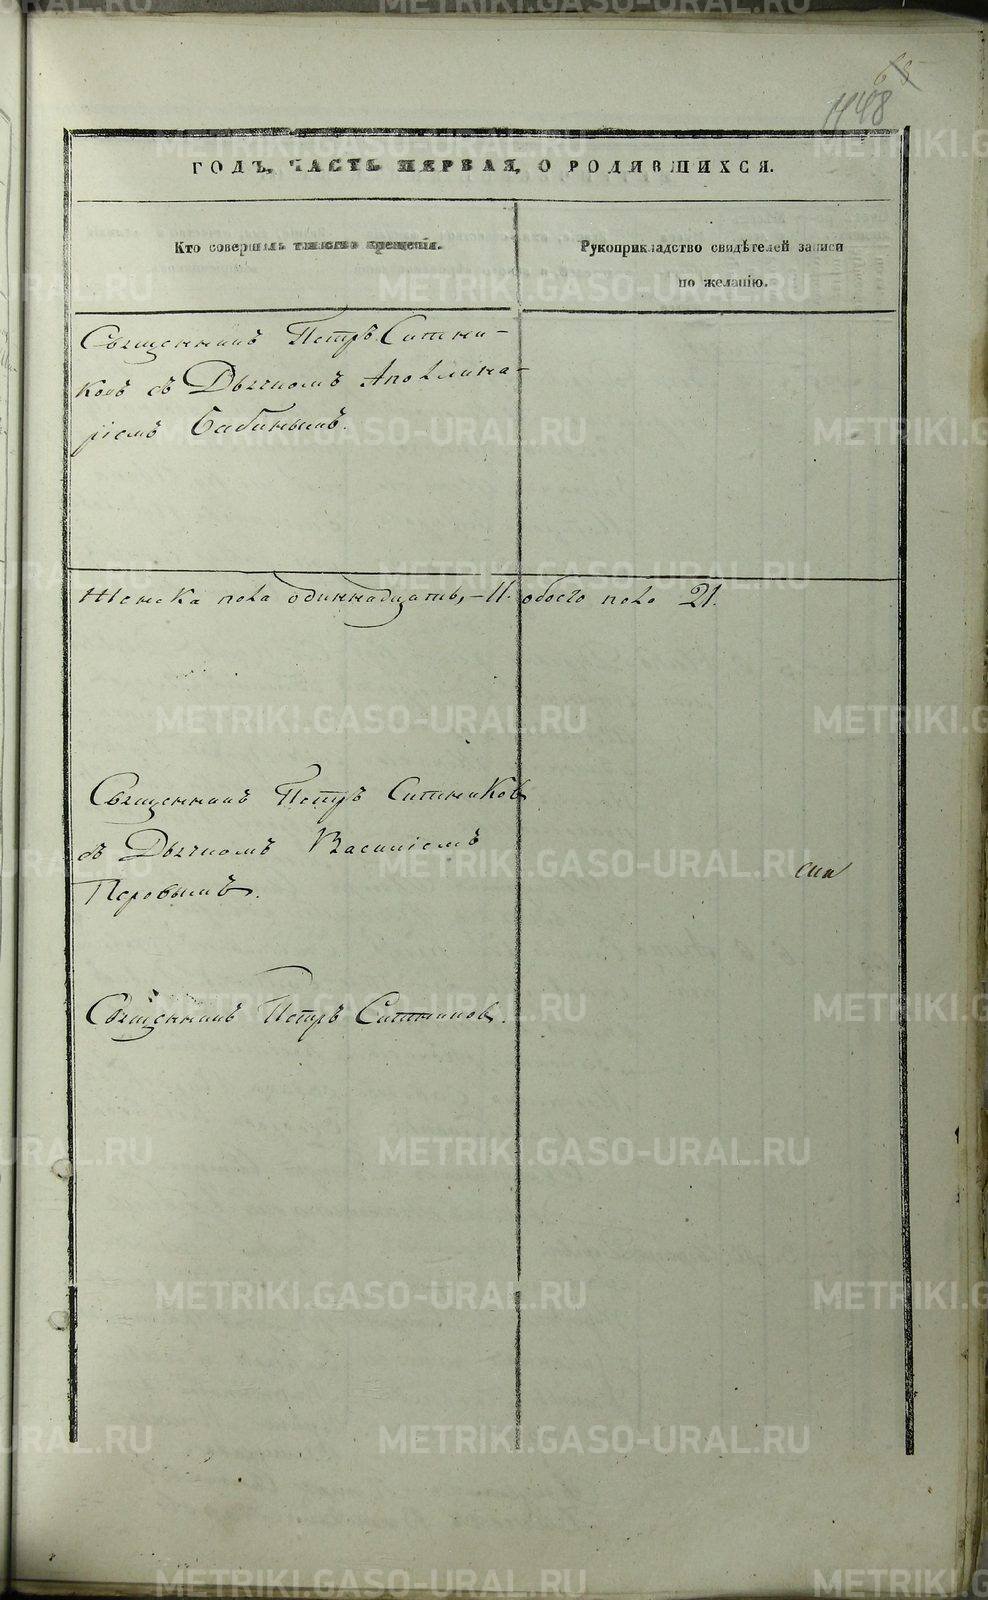 65
448
ГОДЪ, ЧАСТЬ ПЕРВАЯ, О РОДИВШИХСЯ.
Кто совершалъ таинство крещенія.
Рукоприкладство свидѣтелей записи
по желанію.
Священникъ Петръ Ситни-
ковъ съ Дьячкомъ Аполлина-
ріемъ Бабинымъ.
Женска пола одиннадцать, - 11. обоего пола 21.
Священникъ Петръ Ситниковъ
съ Дьячкомъ Василіемъ
Священникъ Петръ Ситниковъ.
METRIKI.GASO-URAL.RU